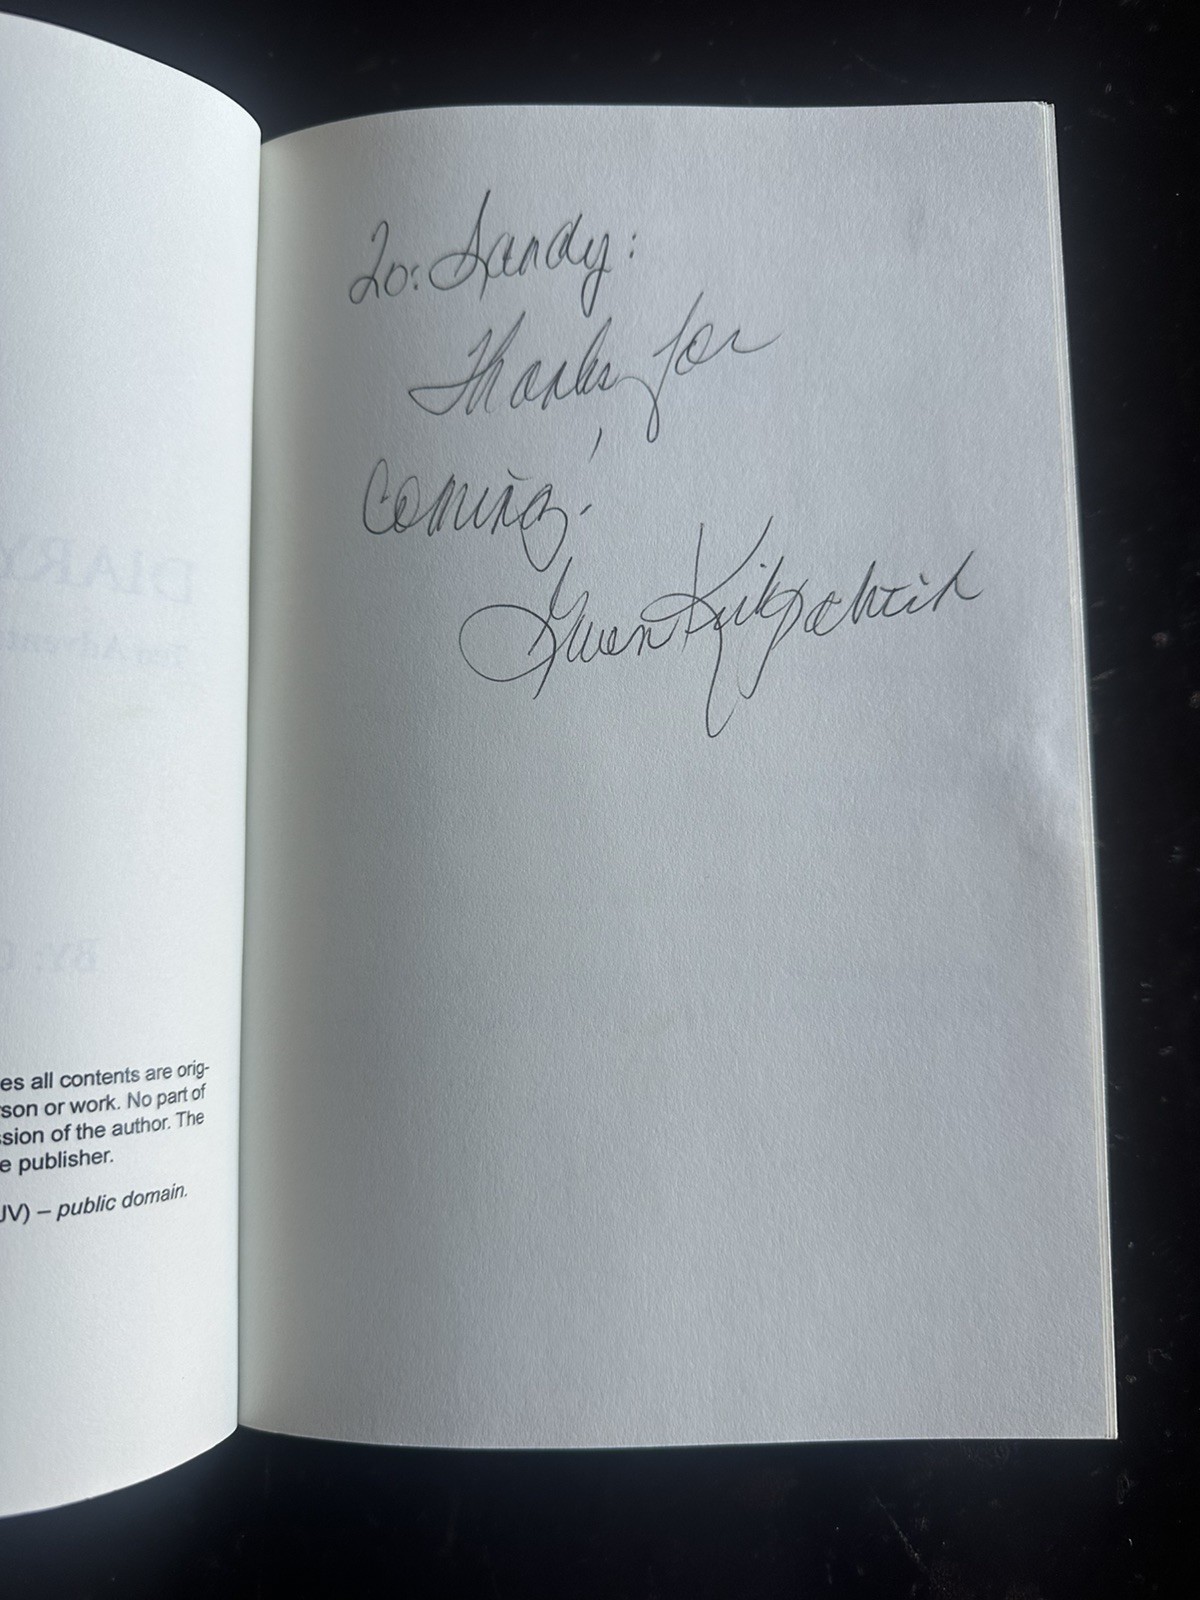 DIARY
BY:
es all contents are orig-
son or work. No part of
sion of the author. The
e publisher.
JV) – public domain.
To: Sandy:
Thanks for
coming!
Gwen Kirkpatrick